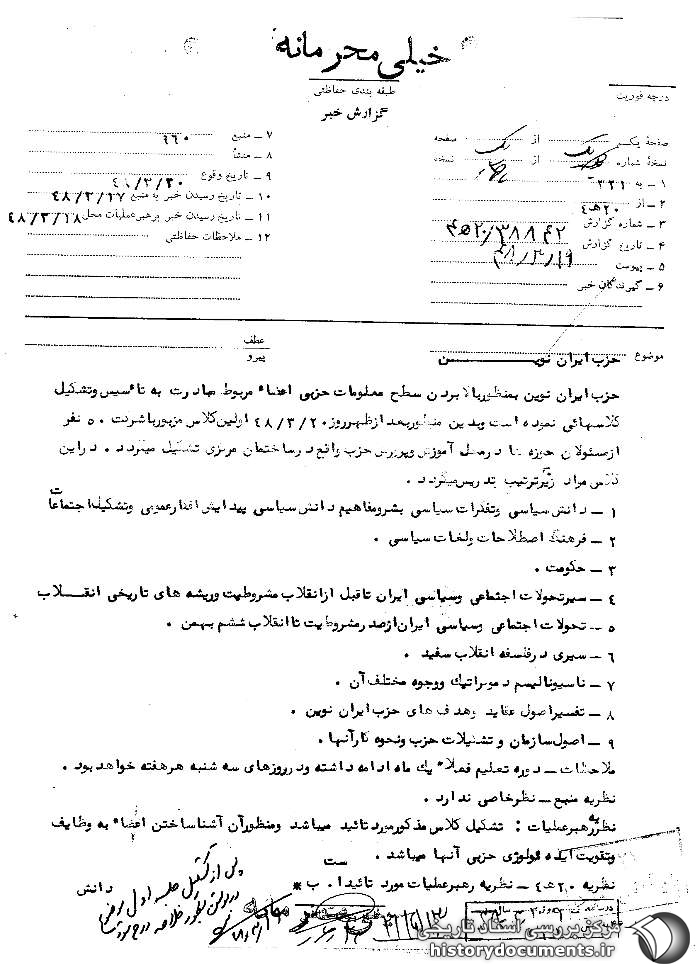 خیلی محرمانه
طبقه بندی حفاظتی
گزارش خبر
درجه فوریت
صفحهٔ یکـ از یک صفحه
نسخهٔ شماره از نسخه
۱ ــ به ۳۲۱
۲ ــ از ۲۰ﻫ۴
۳ ــ شماره گزارش ۲۰/۳۸۸۴۲ﻫ۴
۴ ــ تاریخ گزارش ۴۸/۳/۱۹
۵ ــ پیوست
۶ ــ گیرندگان خبر
۷ ــ منبع ۹۶۰
۸ ــ منشأ
۹ ــ تاریخ وقوع ۴۸/۳/۲۰
۱۰ ــ تاریخ رسیدن خبر به منبع ۴۸/۳/۱۷
۱۱ ــ تاریخ رسیدن خبر برهبر عملیات محل ۴۸/۳/۱۸
۱۲ ــ ملاحظات حفاظتی
موضوع حزب ایران نویــــــن
عطف
پیرو
حزب ایران نوین بمنظور بالا بردن سطح معلومات حزبی اعضاء مربوط مبادرت به تائسیس وتشکیل
کلاسهائی نموده است وبدین منظور بعد از ظهر روز ۴۸/۳/۲۰ اولین کلاس مزبور باشرکت ۵۰ نفر
از مسئولان حوزه ها در محل آموزش وپرورش حزب واقع در ساختمان مرکزی تشکیل میگردد . در این
کلاس مواد زیر بترتیب تدریس میگردد .
۱ ــ دانش سیاسی وتفکرات سیاسی بشر ومفاهیم دانش سیاسی پیدایش افکار عمومی وتشکیل اجتماعات
۲ ــ فرهنگ اصطلاحات ولغات سیاسی .
۳ ــ حکومت .
۴ ــ سیر تحولات اجتماعی وسیاسی ایران تا قبل از انقلاب مشروطیت وریشه های تاریخی انقــلاب
۵ ــ تحولات اجتماعی وسیاسی ایران از صدر مشروطیت تا انقلاب ششم بهمن .
۶ ــ سیری در فلسفه انقلاب سفید .
۷ ــ ناسیونالیسم دموکراتیک ووجوه مختلف آن .
۸ ــ تفسیر اصول عقاید وهدف های حزب ایران نوین .
۹ ــ اصول سازمان و تشکیلات حزب ونحوه کار آنها .
ملاحظات ــ دوره تعلیم فعلا" یک ماه ادامه داشته ودر روزهای سه شنبه هر هفته خواهد بود .
نظریه منبع ــ نظر خاصی ندارد .
نظریه رهبر عملیات : تشکیل کلاس مذکور مورد تائید میباشد ومنظور آن آشنا ساختن اعضاء به وظایف
وتقویت ایده ئولوژی حزبی آنها میباشد .
نظریه ۲۰ﻫ۴ ــ نظریه رهبر عملیات مورد تائید است . ب*
دانش
پس از تشکیل جلسه اول
مرکز بررسی اسناد تاریخی
historydocuments.ir